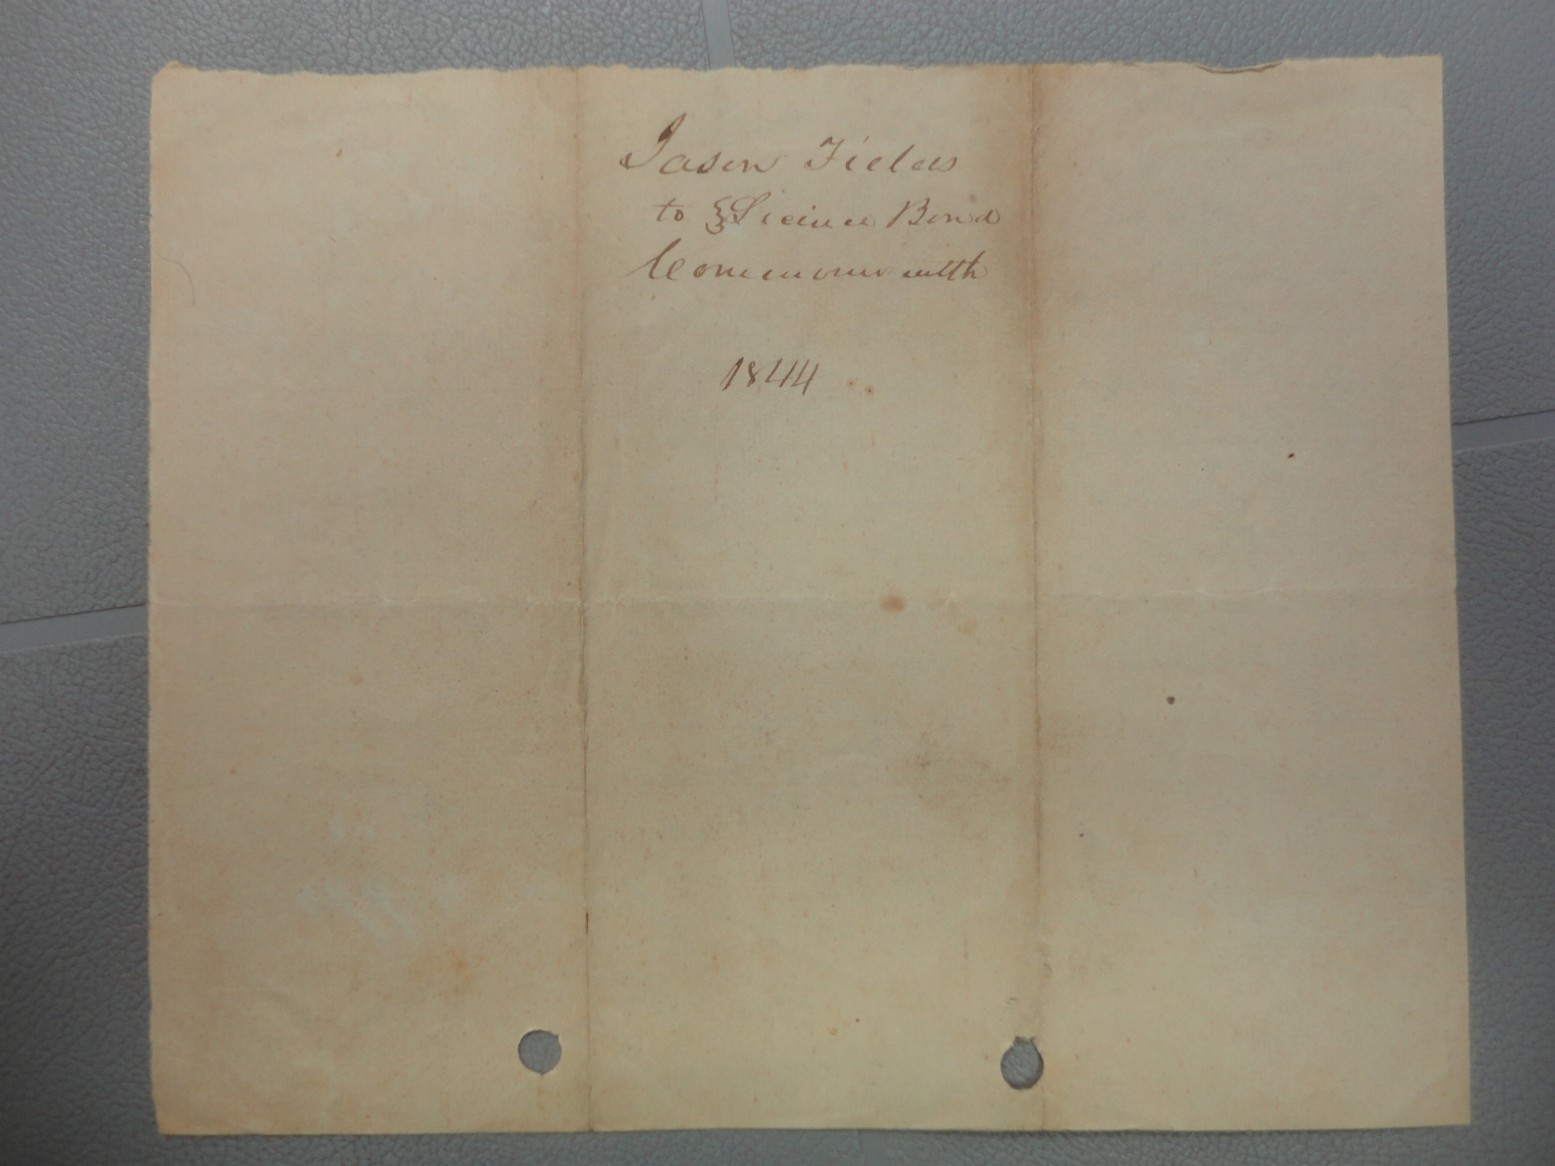 Jason Fields
to } Licince Bond
Commonwealth
1844